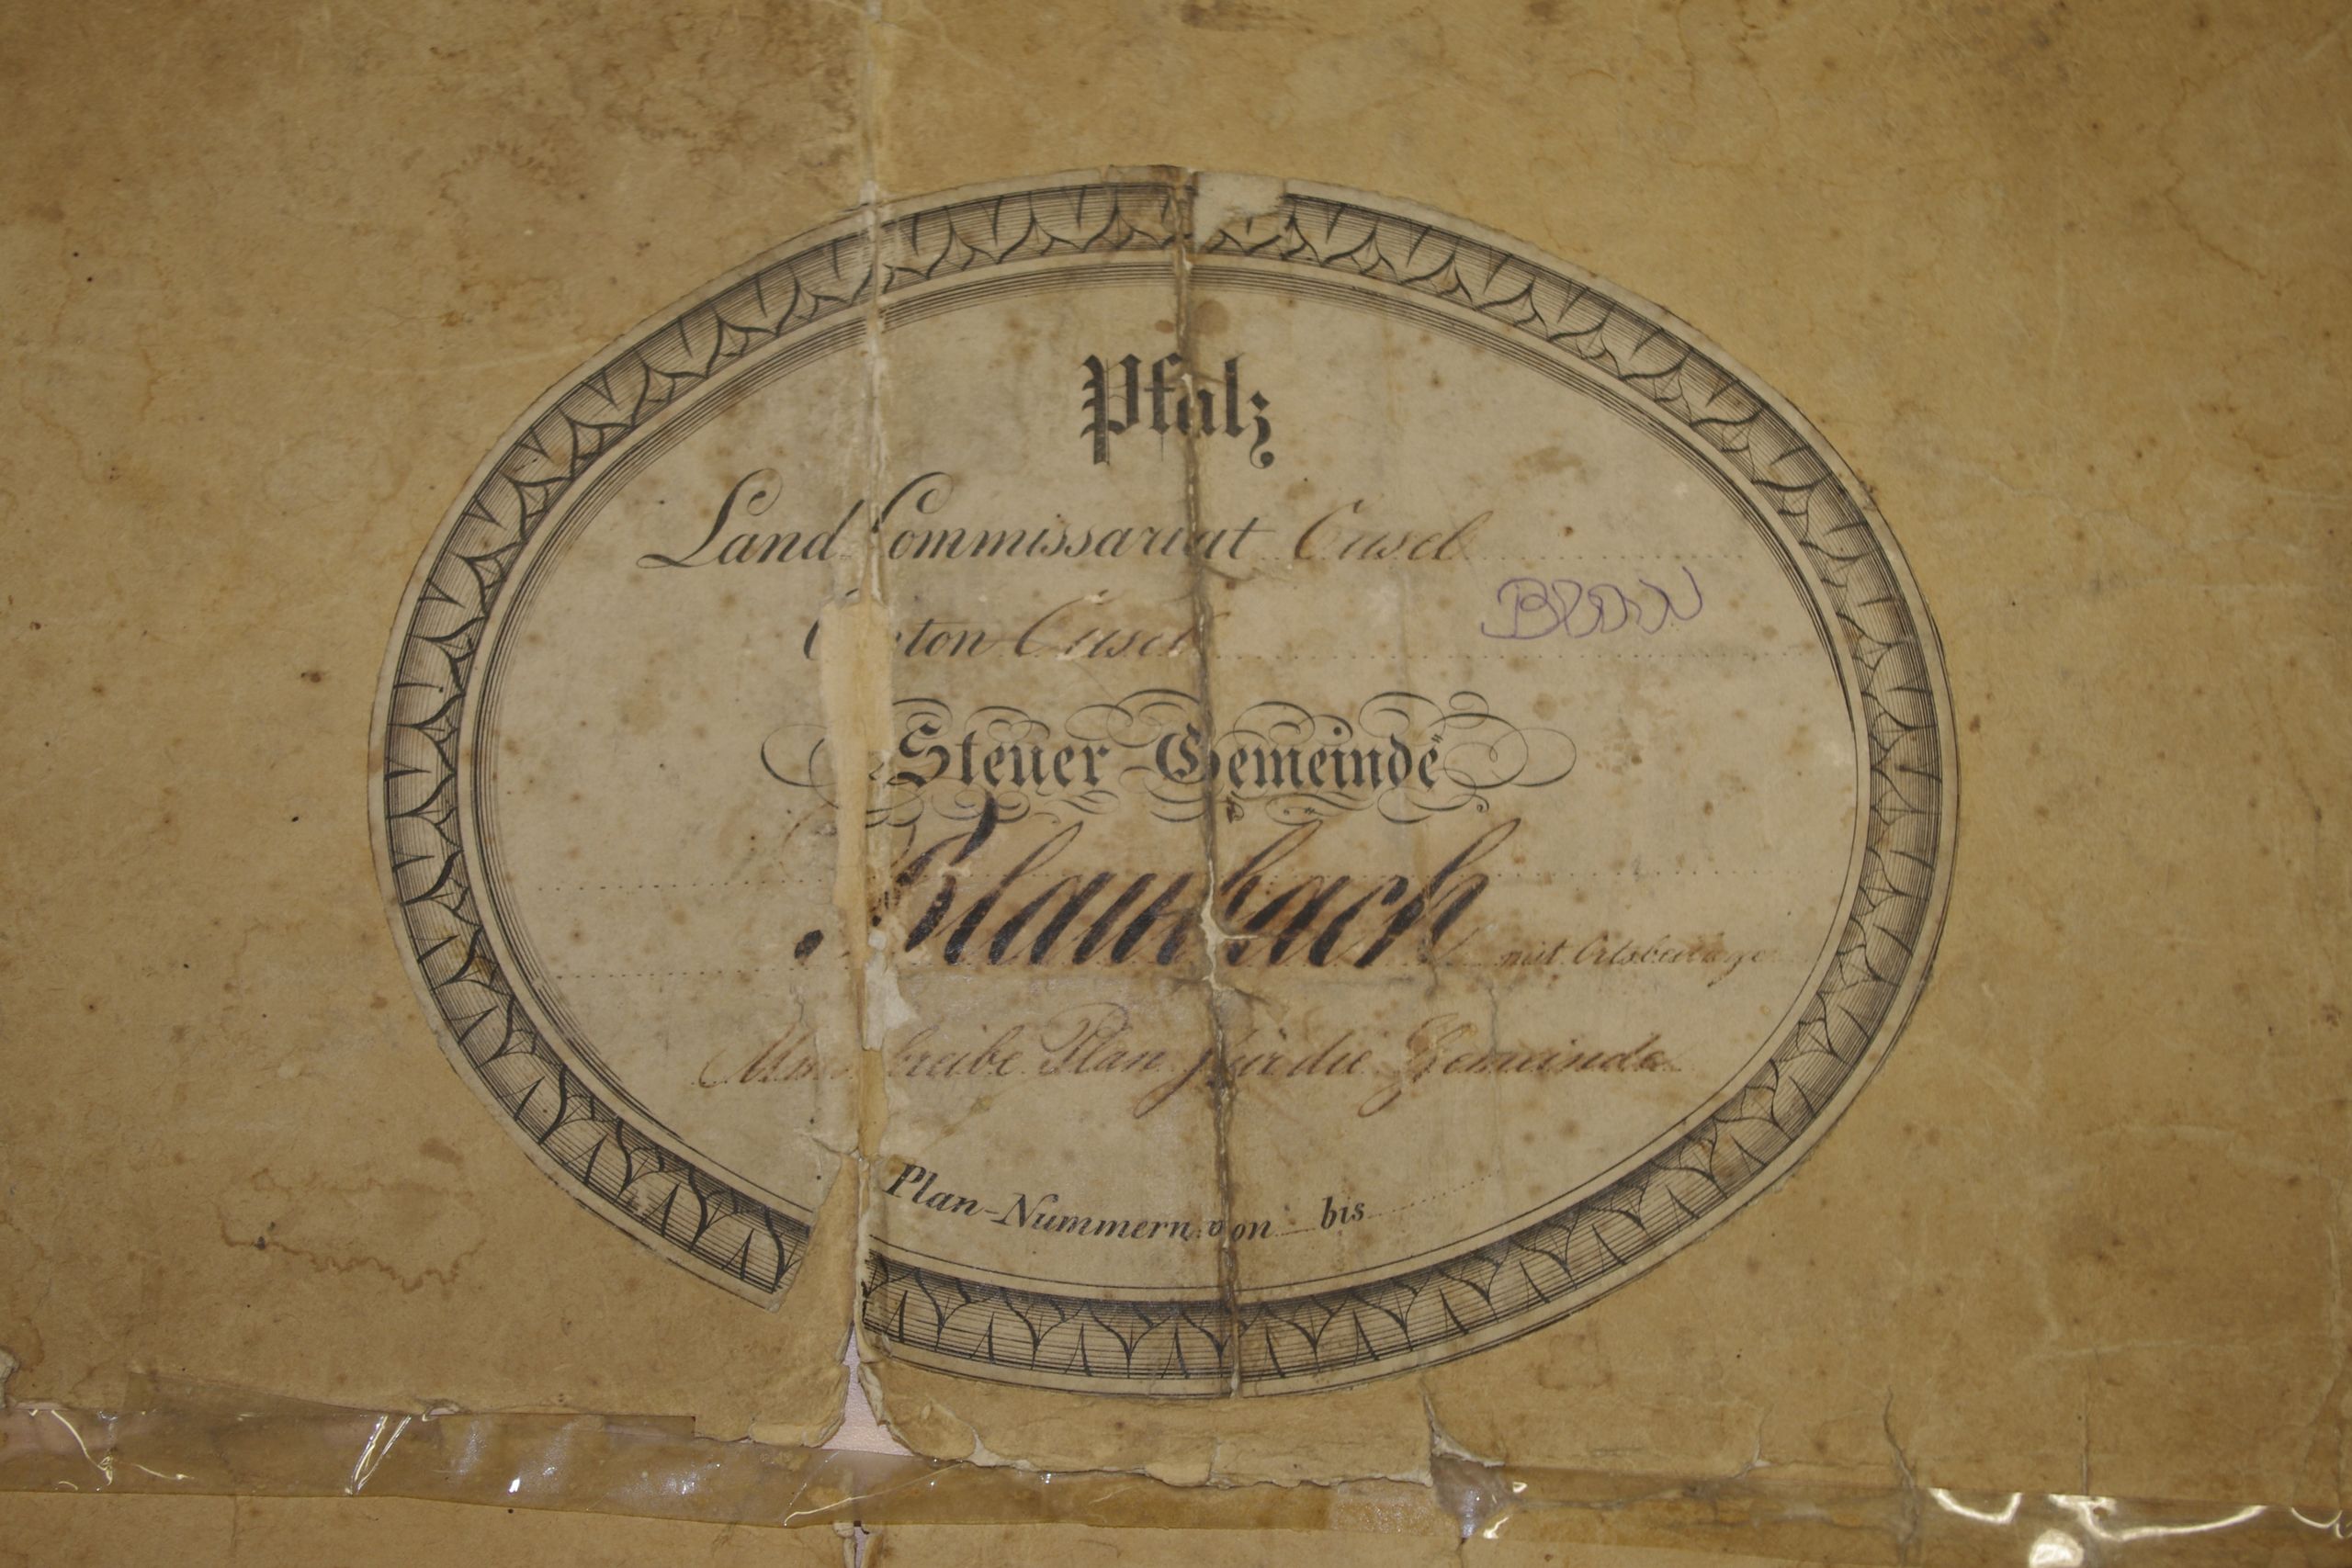 Pfalz
Land Commissariat Cusel
Canton Cusel
Steuer-Gemeinde
Blaubach mit Ortsbeilage
Umschreibe Plan für die Gemeinde
Plan-Nummern von bis